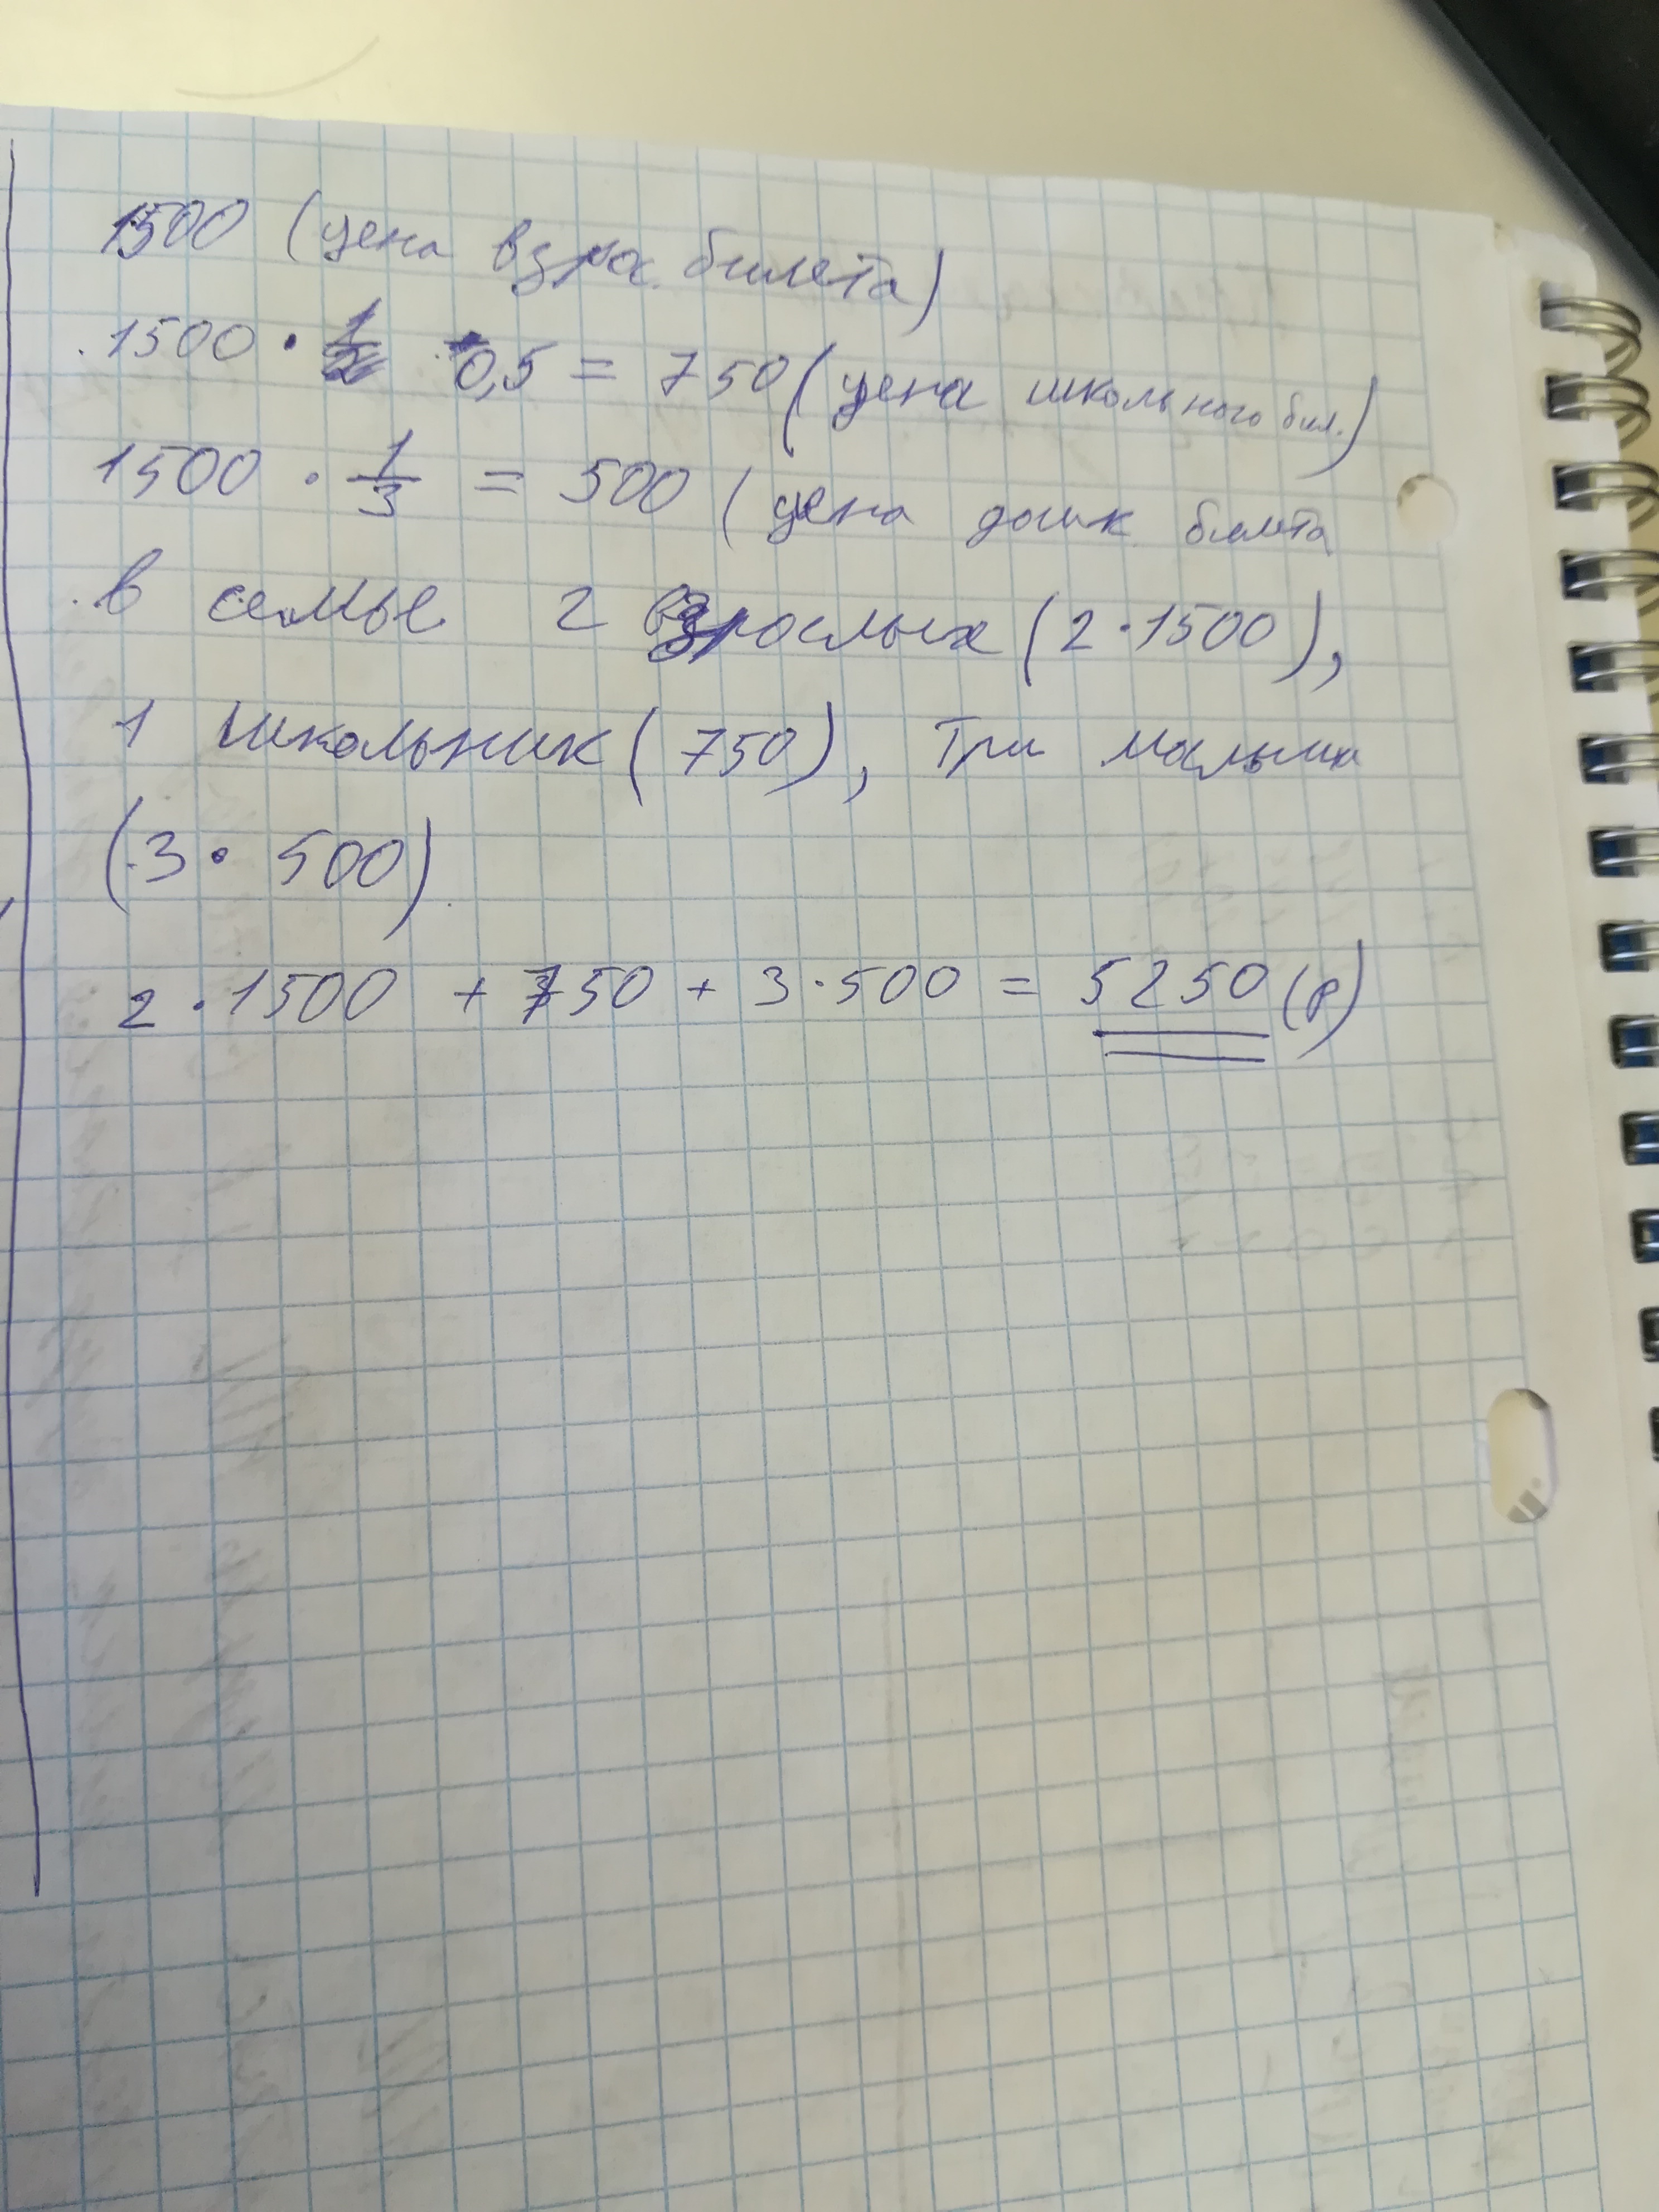 1500 (цена взрос. билета)
1500 · 0,5 = 750 (цена школьного бил.)
1500 · 1/3 = 500 (цена дошк. билета
в семье 2 взрослых (2·1500),
1 школьник (750), три малыша
(3 · 500)
2 · 1500 + 750 + 3·500 = 5250 (р)